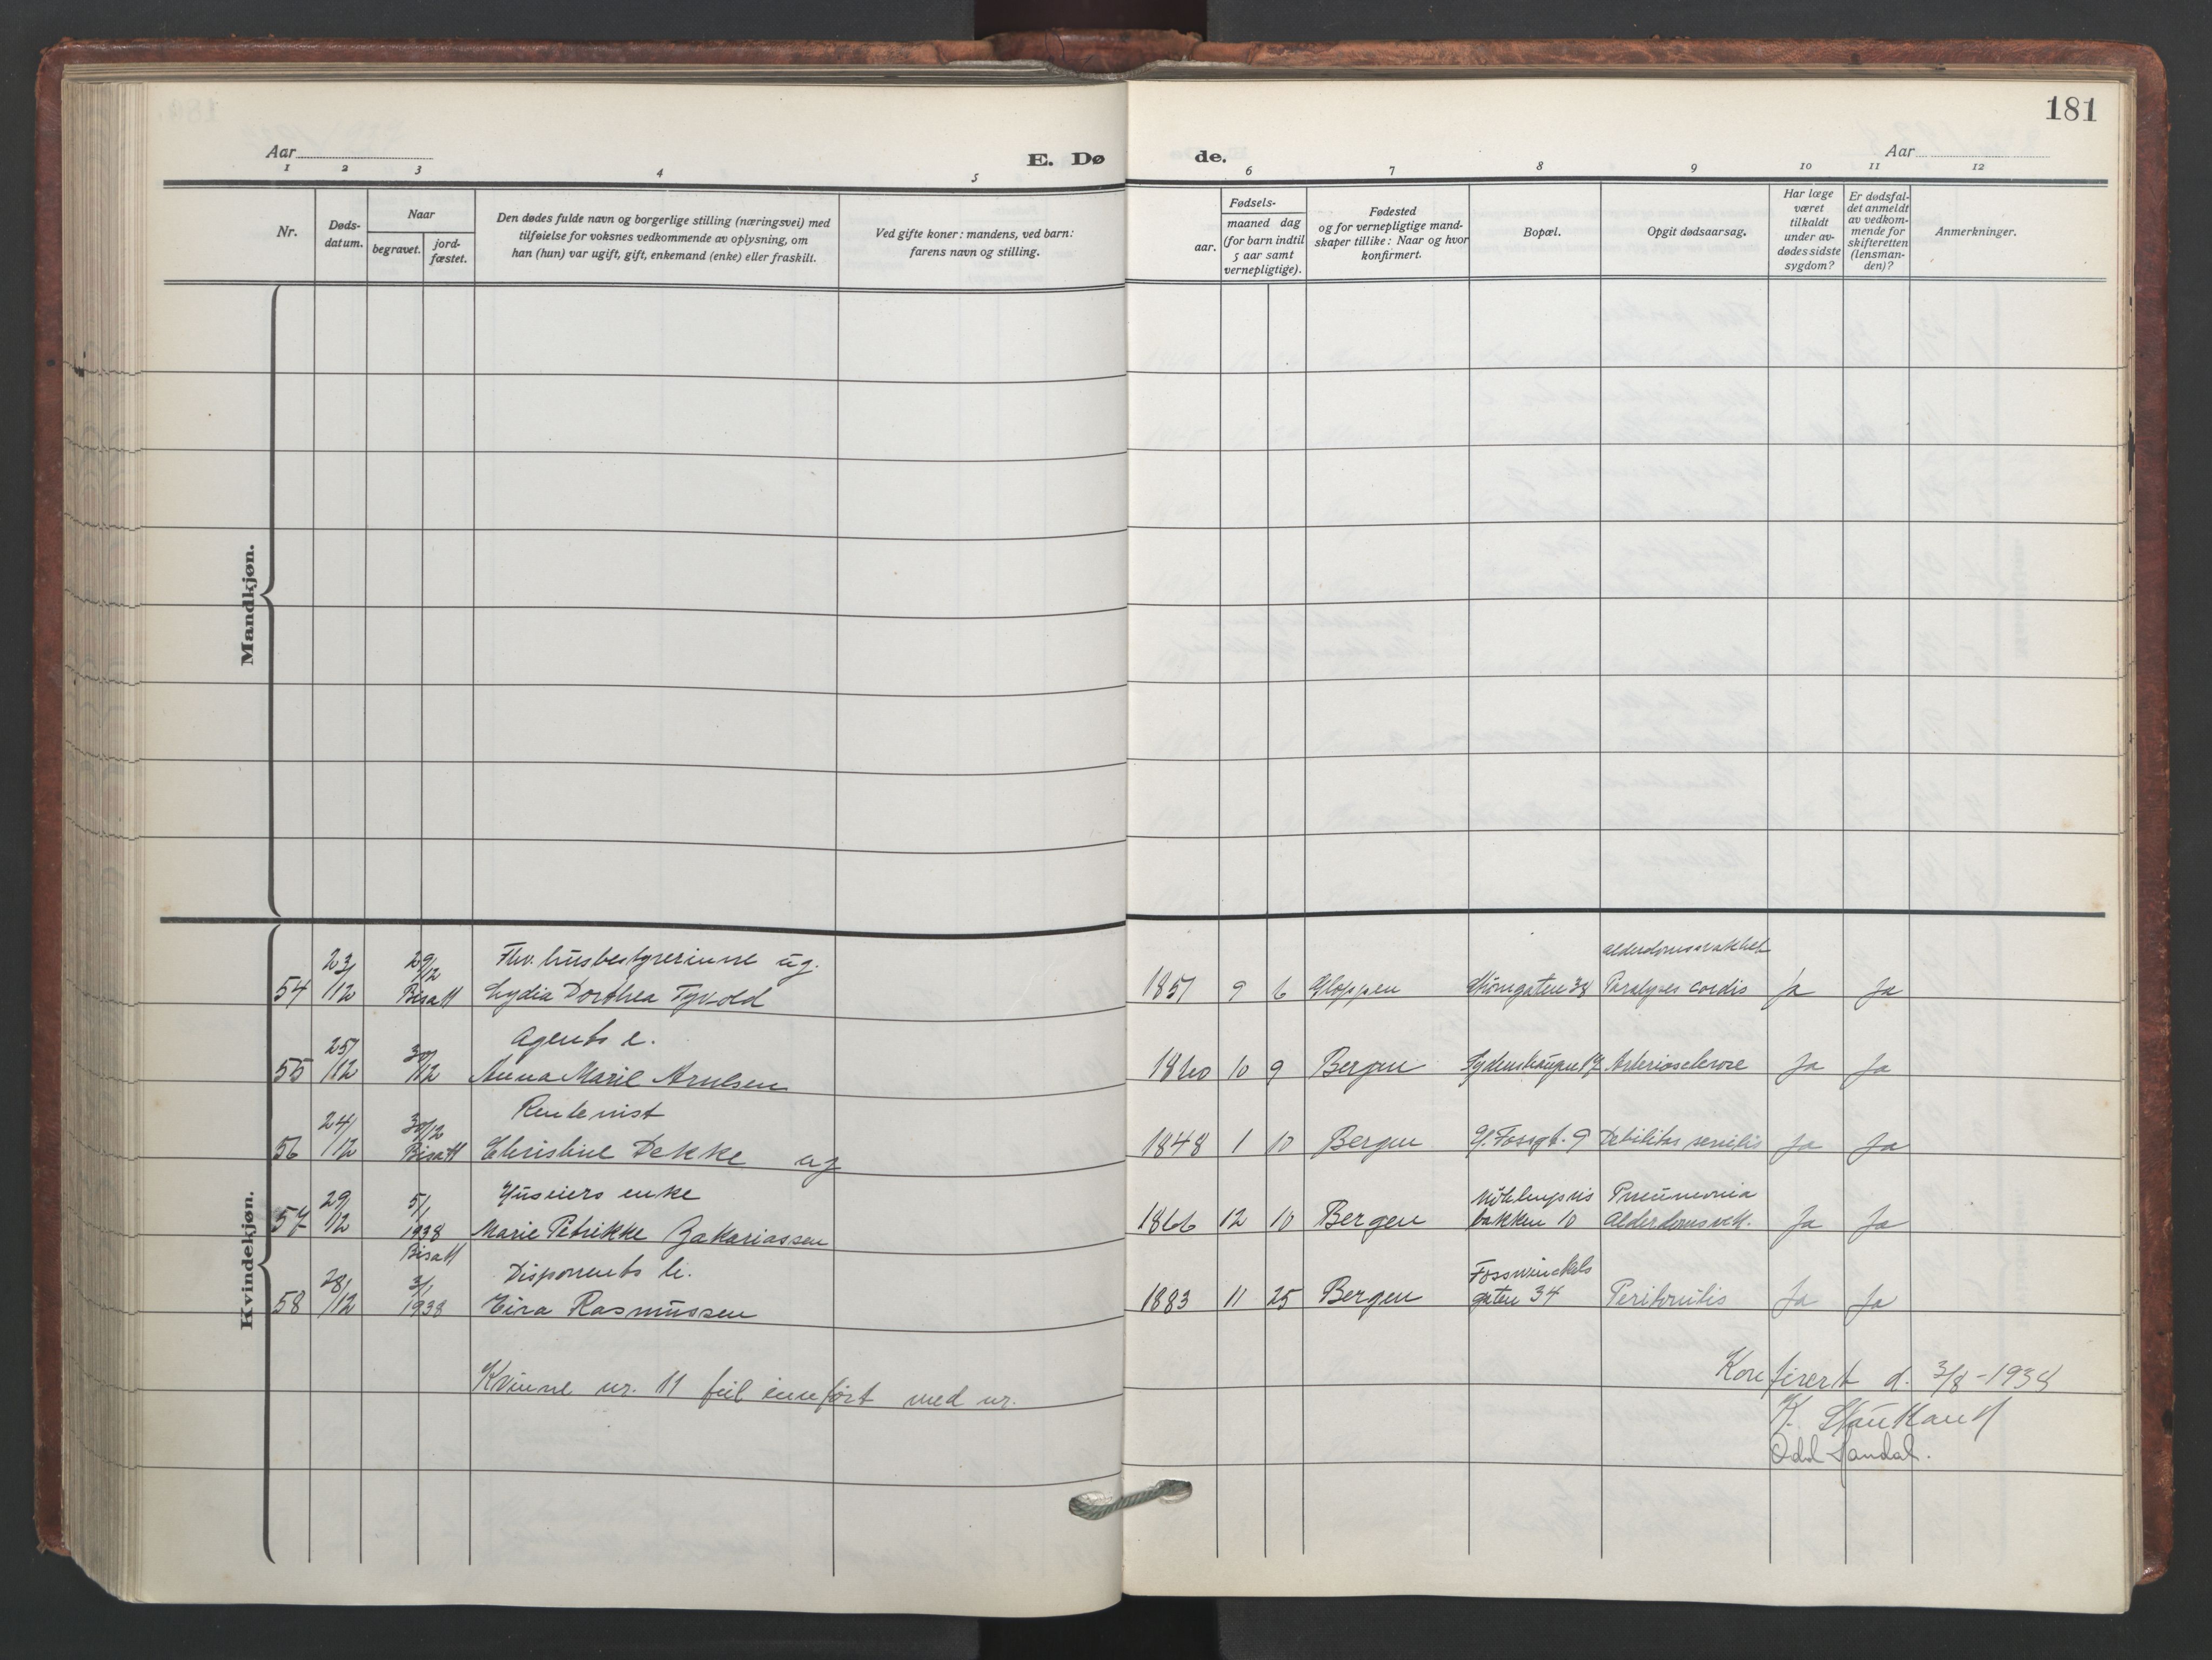 181
Aar
E. Dø
de.
Aar
1 2 3 4 5 6 7 8 9 10 11 12
Nr.
Døds-
datum.
Naar
begravet.
jord-
fæstet.
Den dødes fulde navn og borgerlige stilling (næringsvei) med
tilføielse for voksnes vedkommende av oplysning, om
han (hun) var ugift, gift, enkemand (enke) eller fraskilt.
Ved gifte koner: mandens, ved barn:
farens navn og stilling.
Fødsels-
aar.
maaned dag
(for barn indtil
5 aar samt
vernepligtige).
Fødested
og for vernepligtige mand-
skaper tillike: Naar og hvor
konfirmert.
Bopæl.
Opgit dødsaarsag.
Har læge
været
tilkaldt
under av-
dødes sidste
sygdom?
Er dødsfal-
det anmeldt
av vedkom-
mende for
skifteretten
(lensman-
den)?
Anmerkninger.
Mandkjøn.
Kvindekjøn.
23/ 29/12 Fhv. husbestyrerinne ug. alderdomssvakhet
54 /12 Bisatt Lydia Dorthea Tyvold 1851 9 6 Gloppen 38 Paralyses cordis Ja Ja
25/ 30/ Agents e.
55 /12 /12 Anna Marie Arnesen 1860 10 9 Bergen Sydneshaugen Arteriosclerose Ja Ja
24/ 30/12 Rentenist
56 /12 Bisatt Christine Dekke ug 1848 1 10 Bergen Fossgt. 9 Debilitas senilis Ja Ja
29/ 5/1 Huseiers enke Pneumonia
57 /12 1938 Marie Petrikke Zakariassen 1866 12 10 Bergen bakken 10 Alderdomsvk. Ja Ja
Bisatt
28/ 3/1 Disponents h. Fosswinckels
58 /12 1938 Eira Rasmussen 1883 11 25 Bergen gaten 34 Peritonitis Ja Ja
Kvinne nr. 11 feil innført med nr.
Konferert d. 3/8-1938
K.
Odd Sandal.